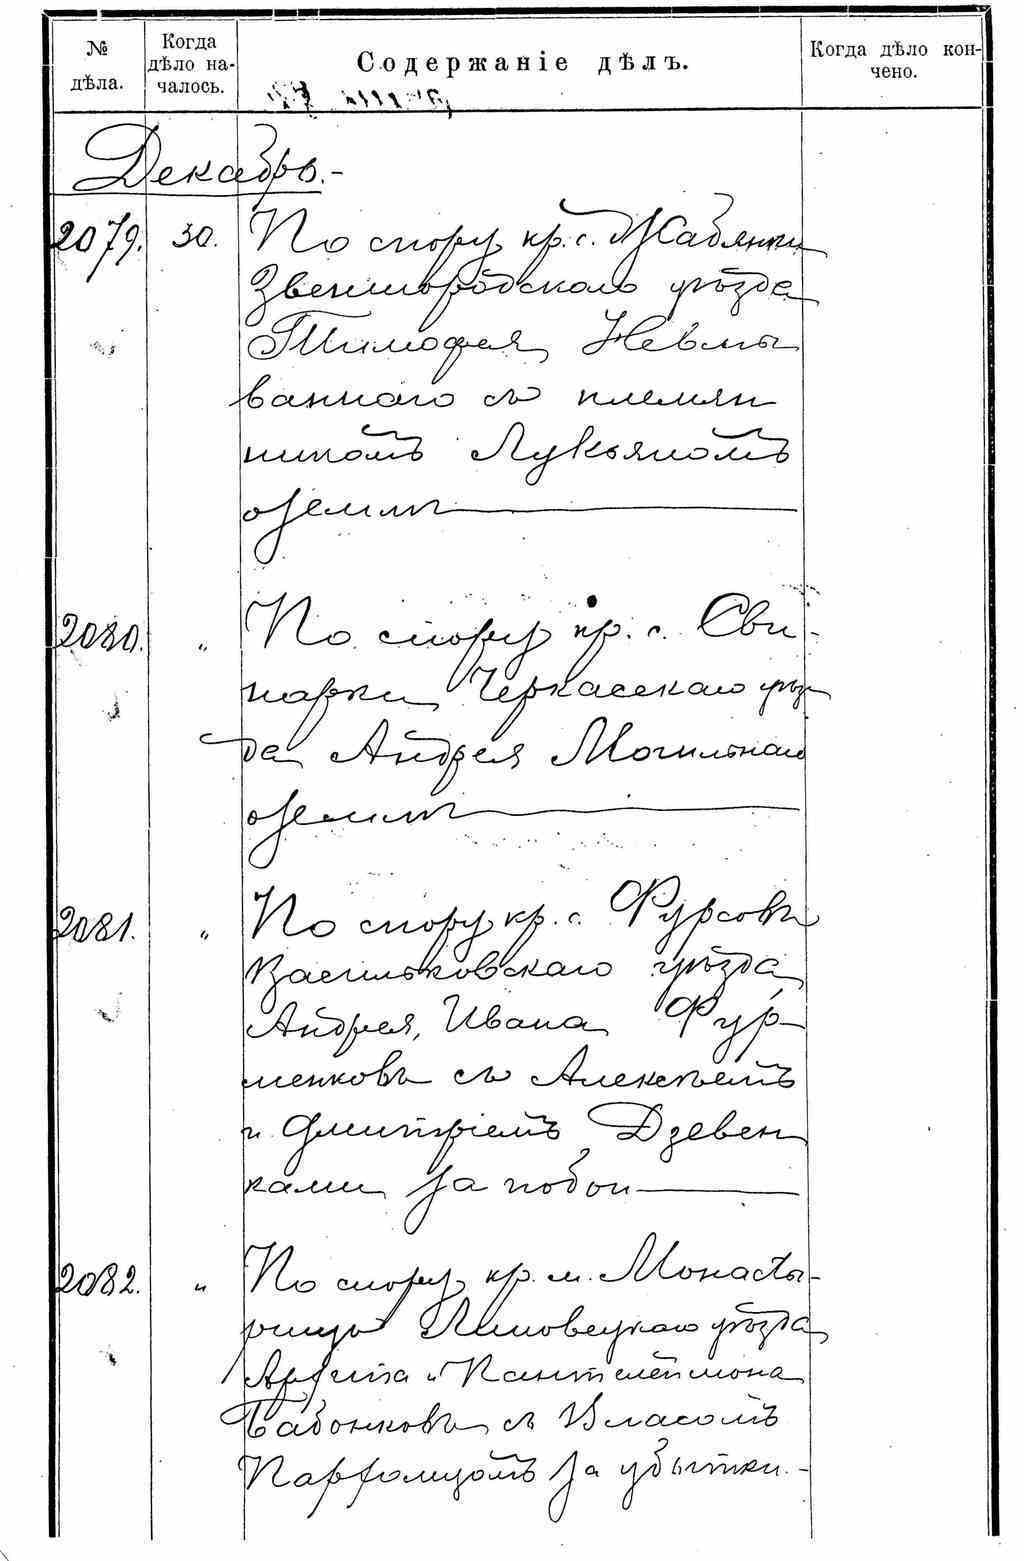 № дѣла.
Когда дѣло на-
чалось.
Содержаніе дѣлъ.
Когда дѣло кон-
чено.
Декабрь.-
2079. 30. По спору кр. с. Жабянки
Звенигородскаго уѣзда
Тимофея Невмы
ваннаго съ племян
никомъ Лукьяномъ
о земли
2080. " По спору кр. с. Сви-
нарки Черкасскаго уѣз
да Андрея Могильнаго
о земли
2081. " По спору кр. с. Фурсовъ
Васильковскаго уѣзда
Андрея, Ивана Фур-
менковъ съ Алексѣемъ
и Дмитріемъ Дзевен
ками за побои
2082. " По спору кр. м. Монасты-
рища Липовецкаго уѣзда
и Кантелеймона
Бабонковъ съ Власомъ
за убытки.-